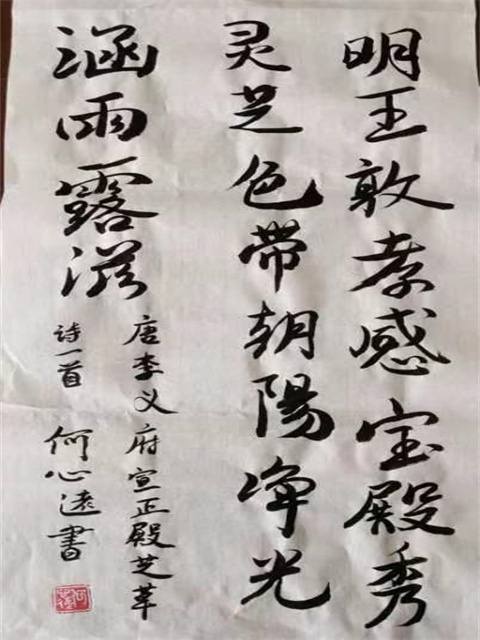 明王敦孝感宝殿秀
灵芝色带朝陽净光
涵雨露滋
唐李义府宣正殿芝草
诗一首
何心遠書